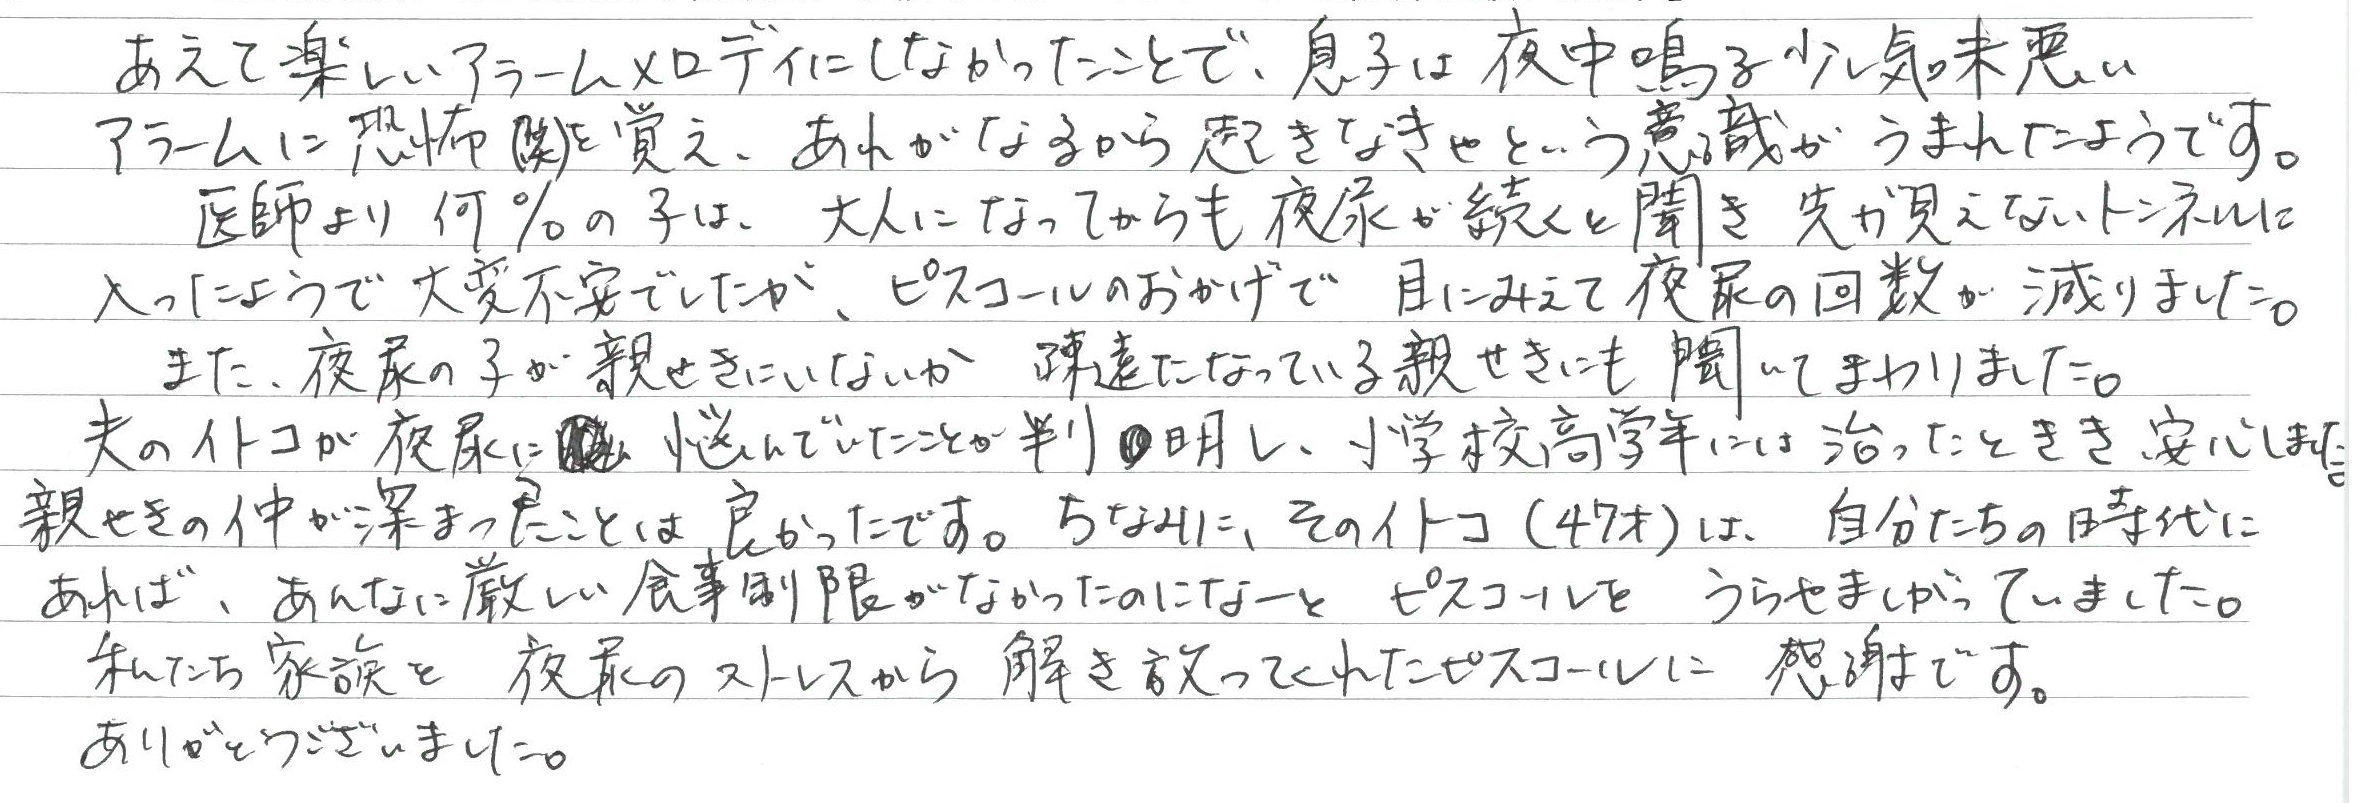 あえて楽しいアラームメロディにしなかったことで、息子は夜中鳴る少し気味悪い
アラームに恐怖を覚え、あれがなるから起きなきゃという意識がうまれたようです。
医師より何%の子は、大人になってからも夜尿が続くと聞き先が見えないトンネルに
入ったようで大変不安でしたが、ピスコールのおかげで目にみえて夜尿の回数が減りました。
また、夜尿の子が親せきにいないか疎遠になっている親せきにも聞いてまわりました。
夫のイトコが夜尿に悩んでいたことが判明し、小学校高学年には治ったときき安心しました
親せきの仲が深まったことは良かったです。ちなみに、そのイトコ(47才)は、自分たちの時代に
あれば、あんなに厳しい食事制限がなかったのになーとピスコールをうらやましがっていました。
私たち家族を夜尿のストレスから解き放ってくれたピスコールに感謝です。
ありがとうございました。